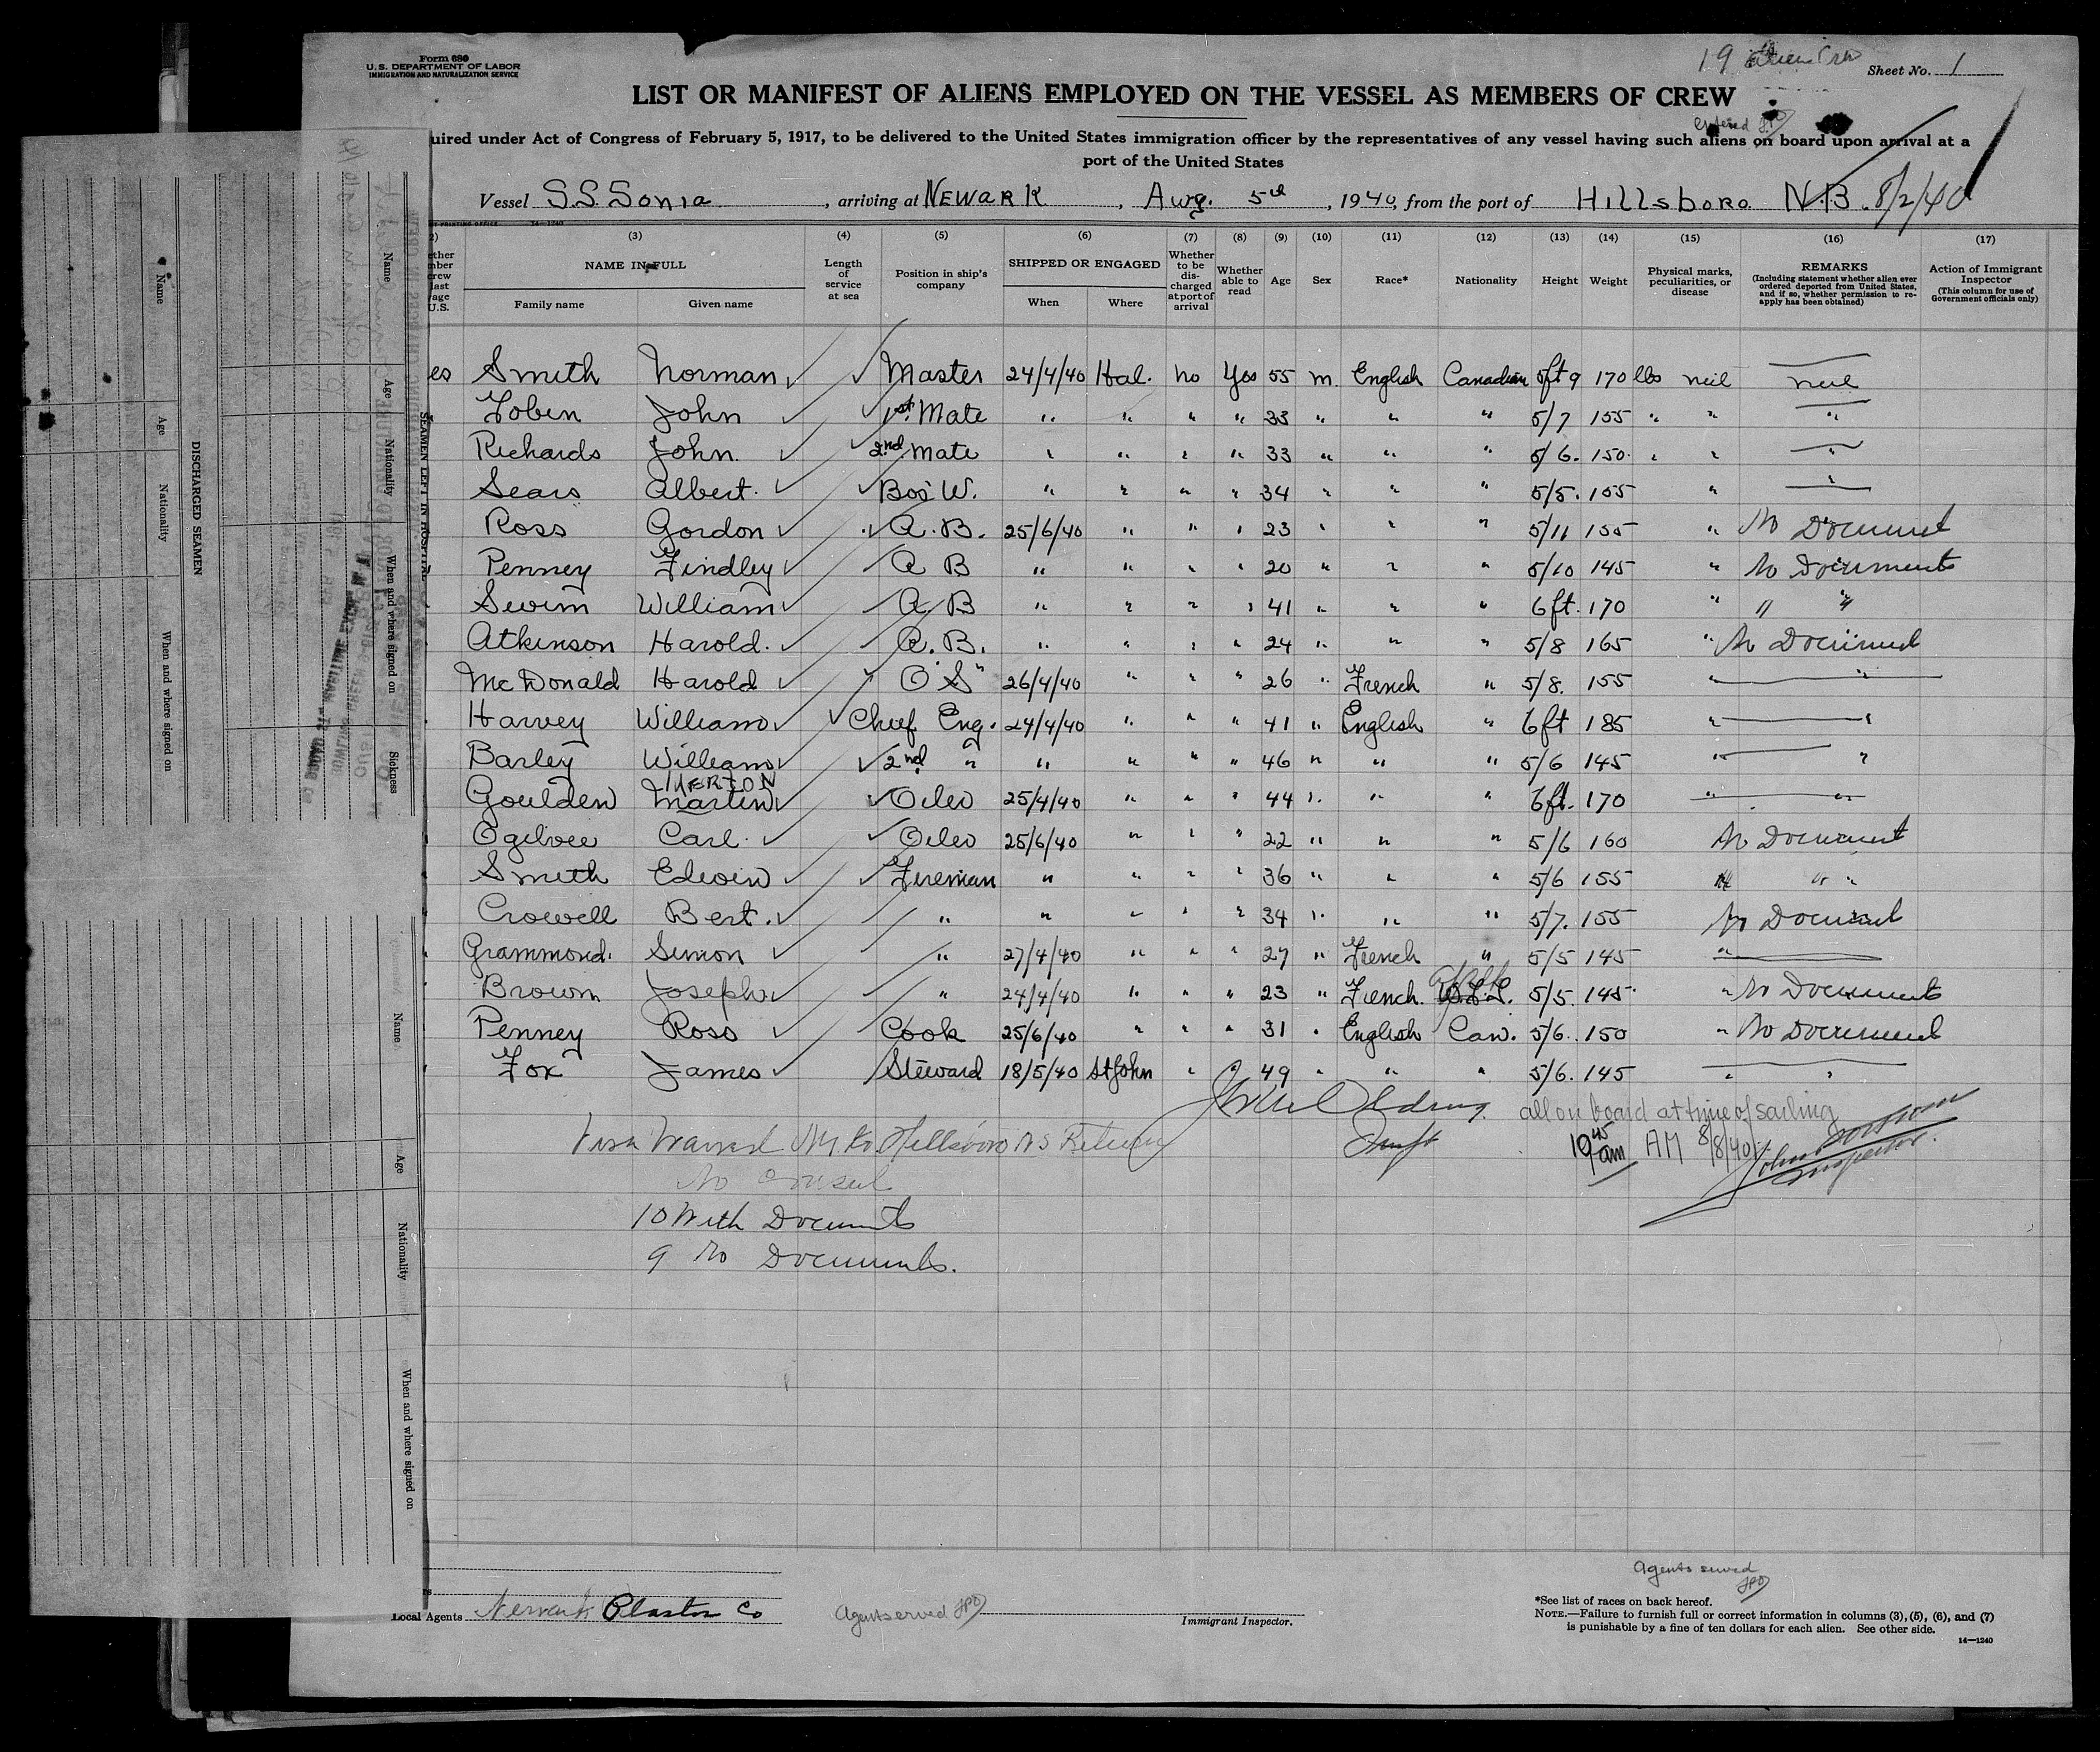 Form 680
U.S. DEPARTMENT OF LABOR
IMMIGRATION AND NATURALIZATION SERVICE
19 Alien Crew
Sheet No. 1
LIST OR MANIFEST OF ALIENS EMPLOYED ON THE VESSEL AS MEMBERS OF CREW
entered JPO
uired under Act of Congress of February 5, 1917, to be delivered to the United States immigration officer by the representatives of any vessel having such aliens on board upon arrival at a
port of the United States
Vessel S.S. Sonia, arriving at Newark, Aug. 5th, 1940, from the port of Hillsboro N.B. 8/2/40
(3) (4) (5) (6) (7) (8) (9) (10) (11) (12) (13) (14) (15) (16) (17)
NAME IN FULL Family name Given name
Length of service at sea
Position in ship's company
SHIPPED OR ENGAGED When Where
Whether to be discharged at port of arrival
Whether able to read
Age Sex Race* Nationality Height Weight
Physical marks, peculiarities, or disease
REMARKS (Including statement whether alien ever ordered deported from United States, and if so, whether permission to reapply has been obtained)
Action of Immigrant Inspector (This column for use of Government officials only)
es Smith Norman Master 24/4/40 Hal. no Yes 55 m. English Canadian 5ft 9 170 lbs neil neil
Tobin John 1st Mate " " " " 33 " " " 5/7 155 " " "
Richards John. 2nd Mate " " " " 33 " " " 5/6. 150. " " "
Sears Albert. Bos'W. " " " " 34 " " " 5/5. 155 " "
Ross Gordon A.B. 25/6/40 " " " 23 " " " 5/11 155 " No Document
Penney Findley A B " " " " 20 " " " 5/10 145 " No Documents
Swim William A B " " " " 41 " " " 6ft. 170 " " "
Atkinson Harold. A.B. " " " " 24 " " " 5/8 165 " No Document
McDonald Harold O.S" 26/4/40 " " " 26 " French " 5/8. 155 " "
Harvey William Chief Eng. 24/4/40 " " " 41 " English " 6ft 185 " "
Barley William 2nd " " " " " 46 " " " 5/6 145 " "
MERTON
Goulden Martin Oiler 25/4/40 " " " 44 " " " 6ft. 170 " "
Ogilvee Carl. Oiler 25/6/40 " " " 22 " " " 5/6 160 No Document
Smith Edwin Fireman " " " " 36 " " " 5/6 155 " "
Crowell Bert. " " " " " 34 " " " 5/7. 155 No Document
Grammond. Simon " 27/4/40 " " " 27 " French " 5/5 145 "
Brown Joseph " 24/4/40 " " " 23 " French. 5/5. 145 " No Documents
Penney Ross Cook 25/6/40 " " " 31 " English Can. 5/6. 150 " No Document
Fox James Steward 18/5/40 St John " " 49 " " " 5/6. 145 " "
all on board at time of sailing
10 45 am AM 8/8/40
John
Inspector.
Hillsboro NS Return
No Consul
10 With Documents
9 No Documents.
Agents served JPO
Local Agents Newark Plaster Co
Agent served JPO
Immigrant Inspector.
*See list of races on back hereof.
NOTE.—Failure to furnish full or correct information in columns (3), (5), (6), and (7)
is punishable by a fine of ten dollars for each alien. See other side.
14—1240
DISCHARGED SEAMEN
Name Age Nationality When and where signed on
SEAMEN LEFT IN HOSPITAL
Name Age Nationality When and where signed on Sickness
Name Age Nationality When and where signed on